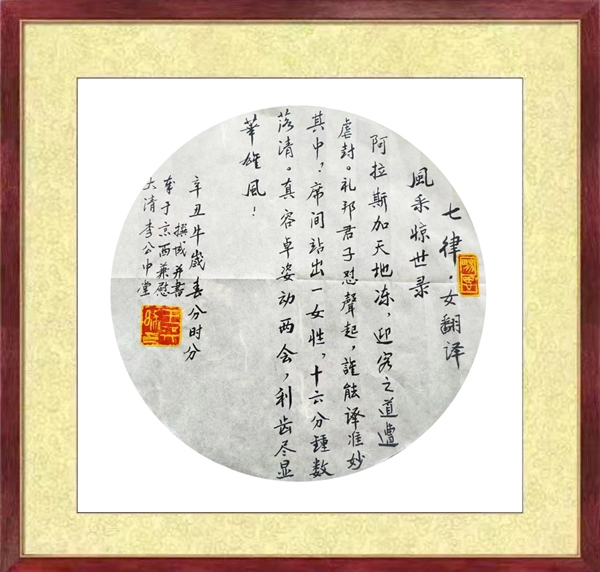 七律·女翻译
风采惊世录
阿拉斯加天地冻，迎客之道遭
虐封。礼邦君子怼聲起，誰能译准妙
其中？席间站出一女性，十六分鍾数
落清。真容卓姿动两会，利齿尽显
華雄风！
辛丑牛歲春分时分
撰城并書
奉于京西兼慰
大清李公中堂